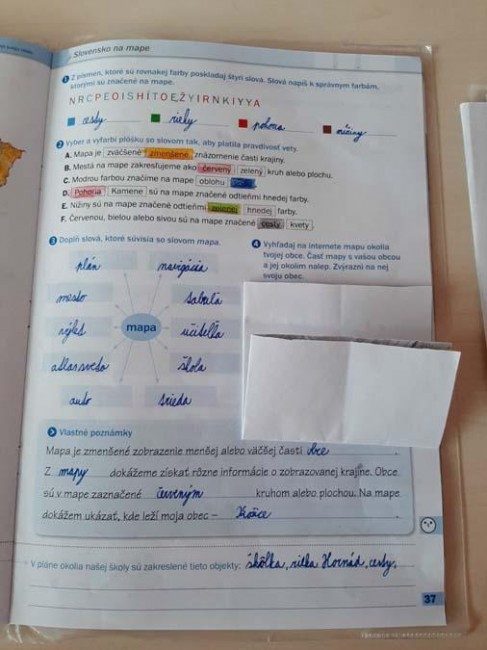 Slovensko na mape
1 Z písmen, ktoré sú rovnakej farby poskladaj štyri slová. Slová napíš k správnym farbám,
ktorými sú značené na mape.
N R C P E O I S H Í T O E Ž Y I R N K I Y Y A
cesty rieky pohoria nížiny
2 Vyber a vyfarbi plôšku so slovom tak, aby platila pravdivosť vety.
A. Mapa je zväčšené zmenšené znázornenie časti krajiny.
B. Mestá na mape zakresľujeme ako červený zelený kruh alebo plochu.
C. Modrou farbou značíme na mape oblohu
D. Pohoria Kamene sú na mape značené odtieňmi hnedej farby.
E. Nížiny sú na mape značené odtieňmi zelenej hnedej farby.
F. Červenou, bielou alebo sivou sú na mape značené cesty kvety
3 Doplň slová, ktoré súvisia so slovom mapa.
4 Vyhľadaj na internete mapu okolia
tvojej obce. Časť mapy s vašou obcou
a jej okolím nalep. Zvýrazni na nej
svoju obec.
plán navigácia
mesto tabuľa
výlet mapa učiteľka
atlas sveta škola
auto trieda
Vlastné poznámky
Mapa je zmenšené zobrazenie menšej alebo väčšej časti obce.
Z mapy dokážeme získať rôzne informácie o zobrazovanej krajine. Obce
sú v mape zaznačené červeným kruhom alebo plochou. Na mape
dokážem ukázať, kde leží moja obec – Košice.
V pláne okolia našej školy sú zakreslené tieto objekty: škôlka, rieka Hornád, cesty.
37